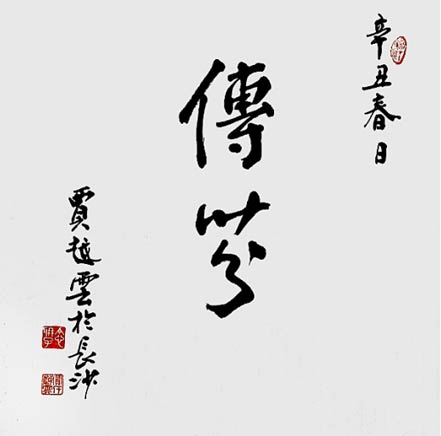 辛丑春日
傳芬
賈越雲於長沙